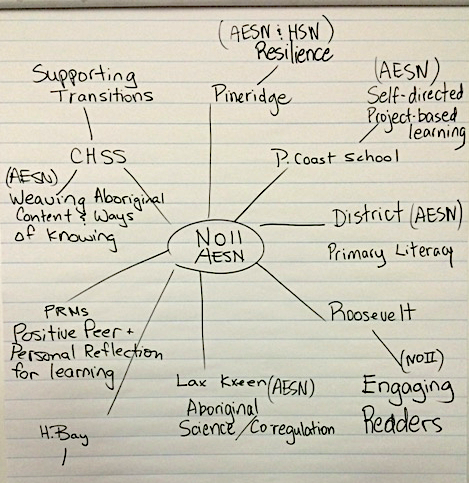 (AESN & HSN)
Resilience
Pineridge
Supporting
Transitions
CHSS
(AESN)
Weaving Aboriginal
Content & Ways
of Knowing
(AESN)
Self-directed
Project-based
learning
P. Coast School
NOII
AESN
District (AESN)
Primary Literacy
Roosevelt
(NOII)
Engaging
Readers
PRMS
Positive Peer +
Personal Reflection
for learning
Lax Kxeen (AESN)
Aboriginal
Science / Coregulation
H. Bay